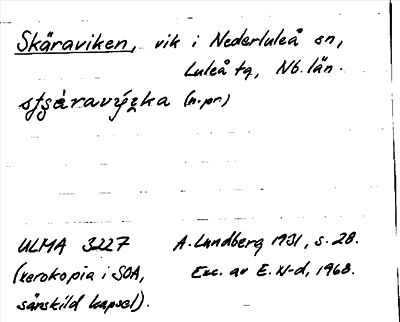 Skäraviken, vik i Nederluleå sn,
Luleå tg, Nb. län.
(n.pr)
ULMA 3227 A. Lundberg 1931, s. 28.
(xerokopia i SOA, Exc. av E. N-d, 1968.
särskild kapsel).